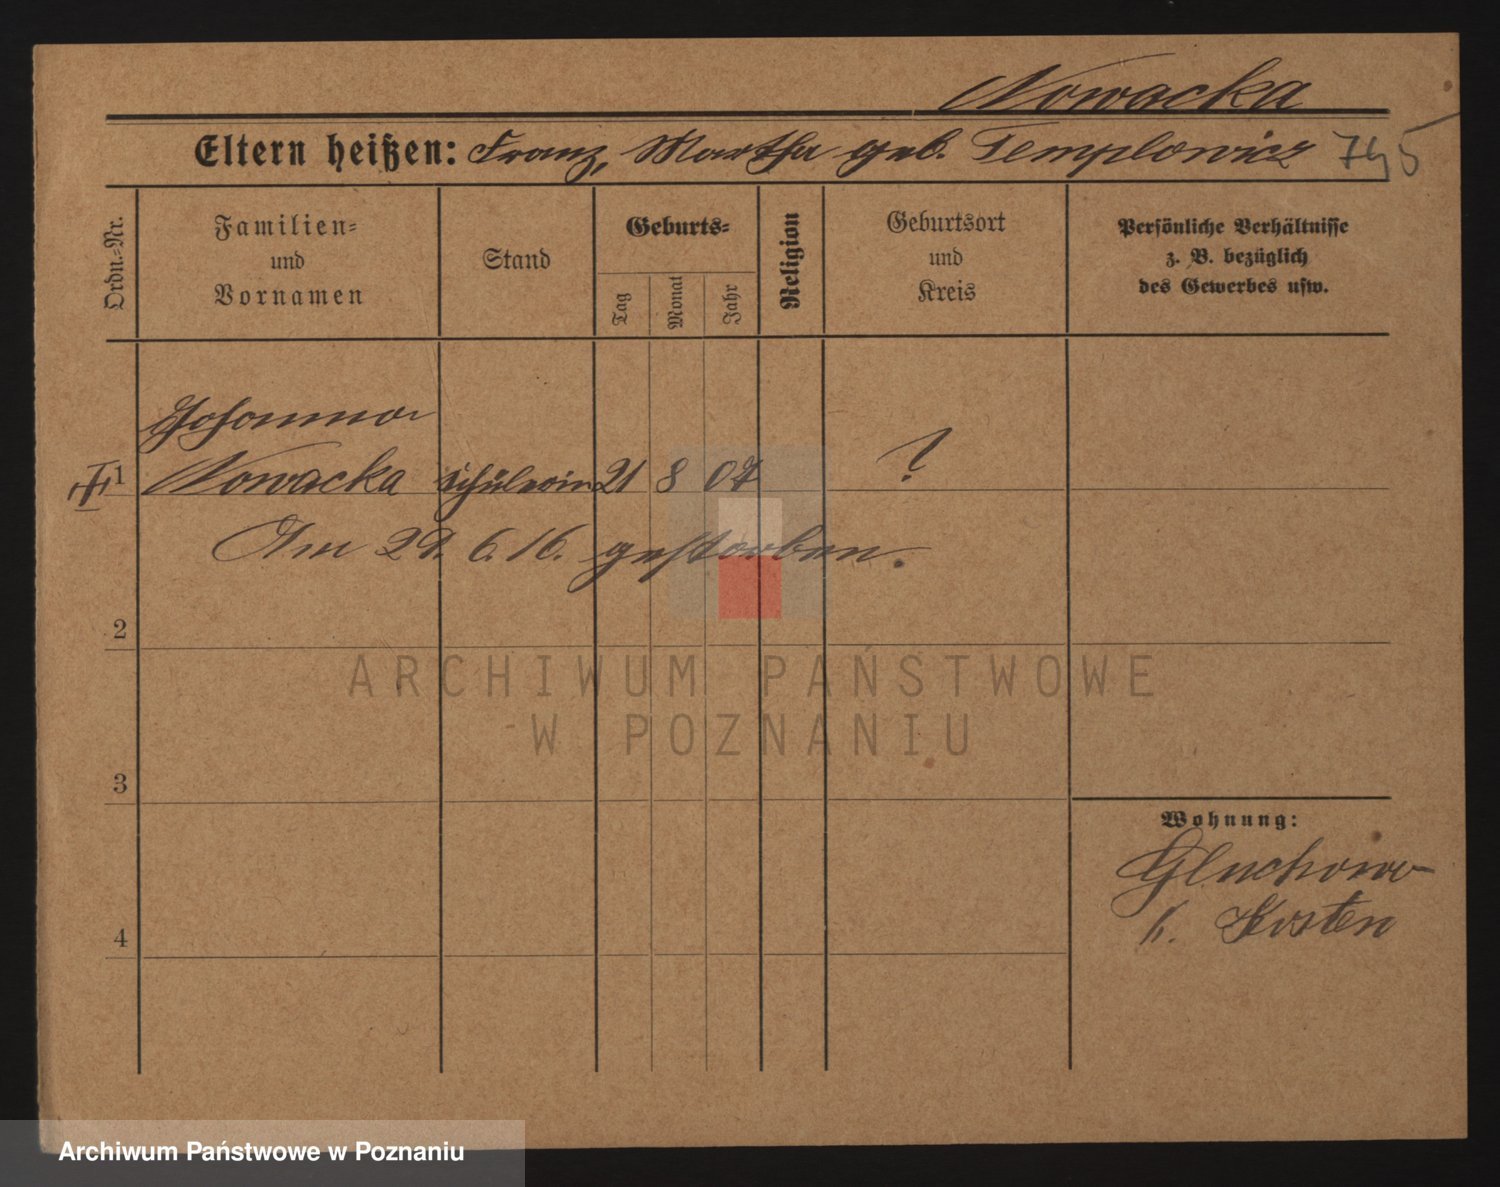 Nowacka
Eltern heißen: Franz, Martha geb. Templowicz 795
Ordn.=Nr.
Familien=
und
Vornamen
Stand
Geburts=
Tag
Monat
Jahr
Religion
Geburtsort
und
Kreis
Persönliche Verhältnisse
z. B. bezüglich
des Gewerbes usw.
Johanna
1 Nowacka Schülerin 21 8 07 ?
Am 29. 6. 16. gestorben.
2
ARCHIWUM PAŃSTWOWE
W POZNANIU
3
Wohnung:
Gluchowo
k. Kosten
4
Archiwum Państwowe w Poznaniu